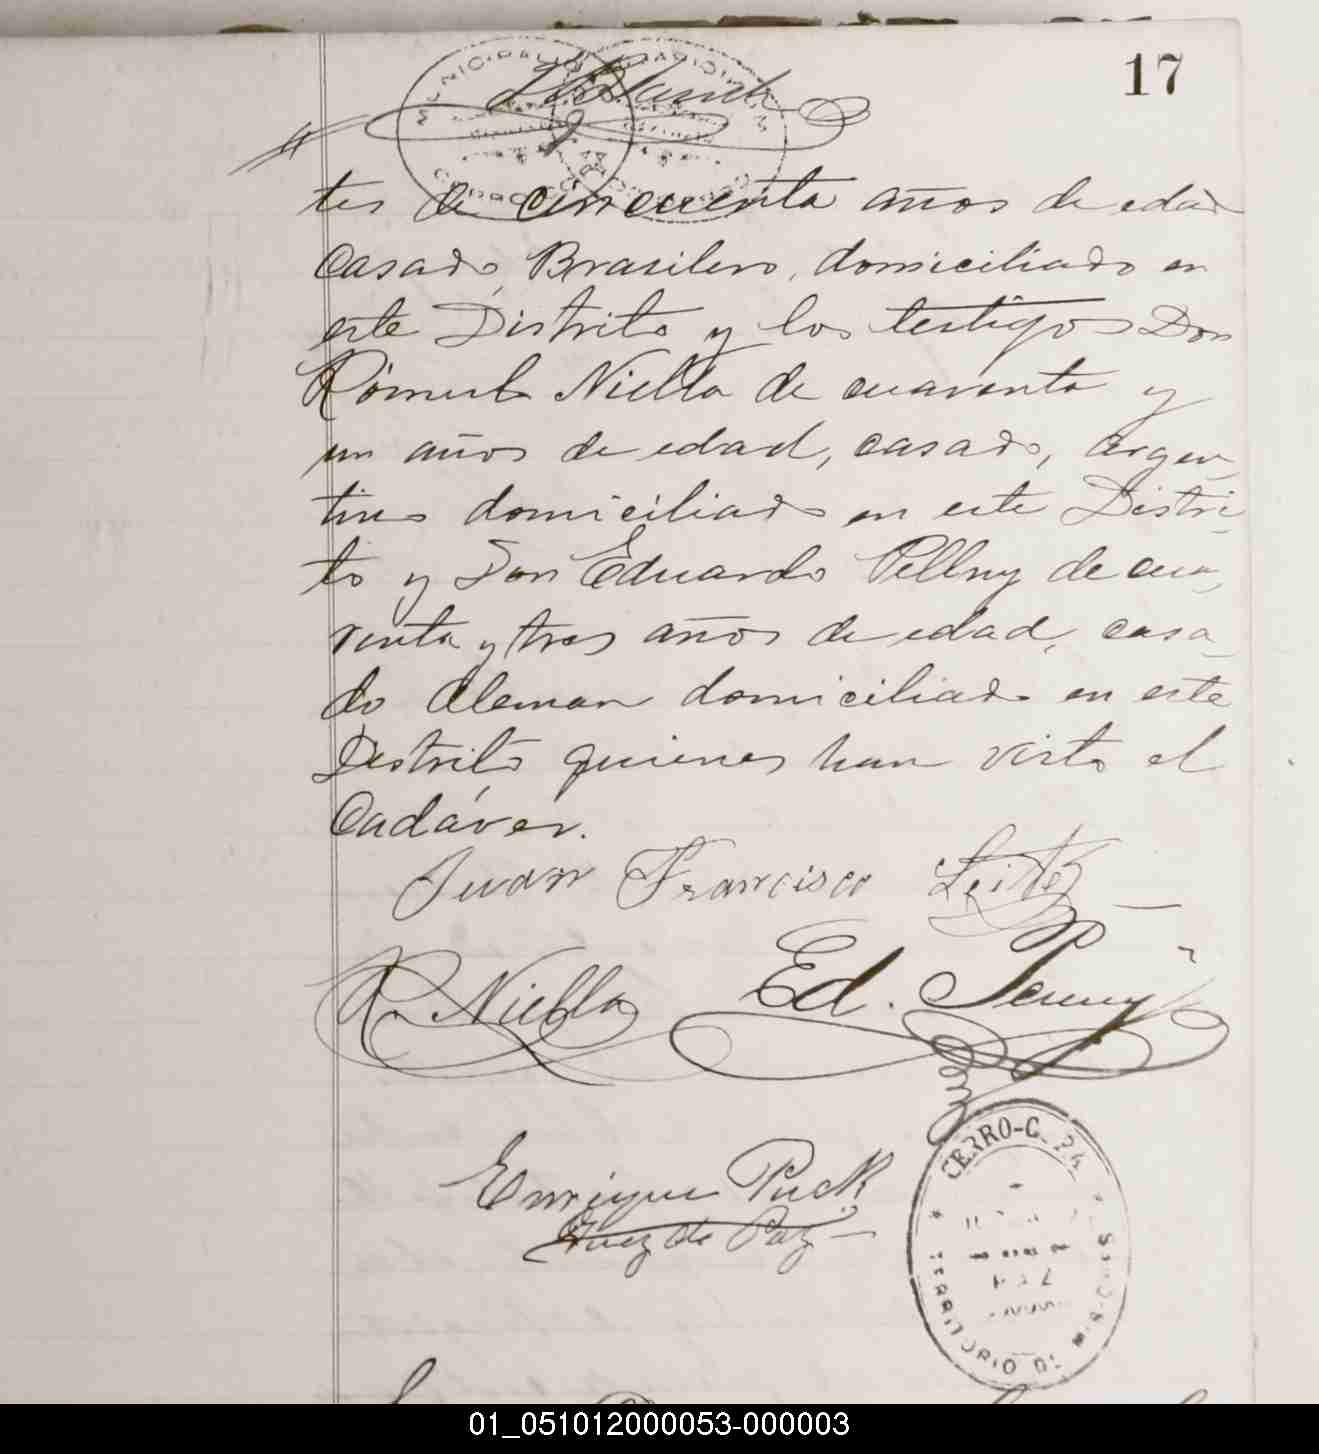 17
tes de cincuenta años de edad
Casado, Brasilero, domiciliado en
este Distrito y los testigos Don
Rómulo Niella de cuarenta y
un años de edad, casado, argen-
tino domiciliado en este Distri-
to y Don Eduardo Pellny de cua-
renta y tres años de edad, casa-
do Aleman domiciliado en este
Distrito quienes han visto el
Cadáver.
Juan Francisco Leite
R. Niella Ed. Penny
Enrique Puck
Juez de Paz
CERRO-C
PAZ
TERRITORIO DE
01_051012000053-000003